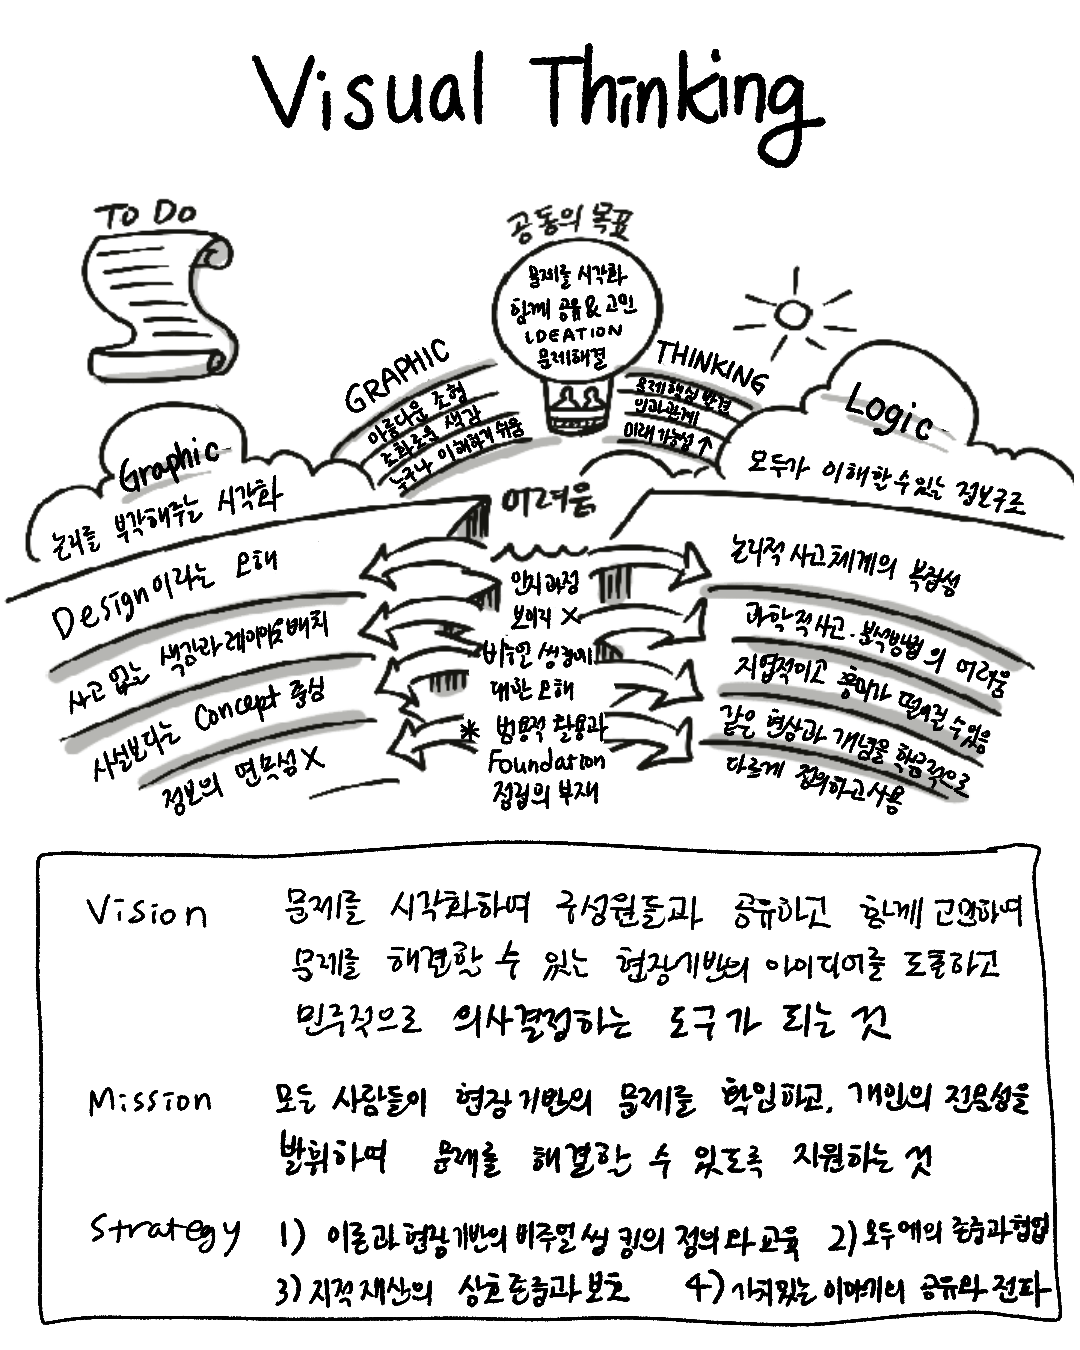 Visual Thinking
TO DO
공동의 목표
문제를 시각화
함께 공유 & 고민
IDEATION
문제해결
GRAPHIC
아름다운 조형
조화로운 색감
누구나 이해하기 쉬움
THINKING
문제 핵심 발견
인과관계
미래 가능성 ↑
Graphic
논리를 부각해주는 시각화
Logic
모두가 이해할 수 있는 정보구조
어려움
Design이라는 오해
사고 없는 색감과 레이아웃 배치
사실보다는 Concept 중심
정보의 면목성 X
인지과정
보이지 X
비주얼 씽킹에
대한 오해
* 범용적 활용과
Foundation
정립의 부재
논리적 사고체계의 복잡성
과학적 사고 · 분석방법의 어려움
지엽적이고 흥미가 떨어질 수 있음
같은 현상과 개념을 학문적으로
다르게 정의하고 사용
Vision 문제를 시각화하여 구성원들과 공유하고 함께 고민하여
문제를 해결할 수 있는 현장기반의 아이디어를 도출하고
민주적으로 의사결정하는 도구가 되는 것
Mission 모든 사람들이 현장기반의 문제를 학입하고, 개인의 전문성을
발휘하여 문제를 해결할 수 있도록 지원하는 것
Strategy 1) 이론과 현장기반의 비주얼 씽킹의 정의와 교육 2) 모두에의 존중과 협업
3) 지적재산의 상호존중과 보호 4) 가치있는 이야기의 공유와 전파